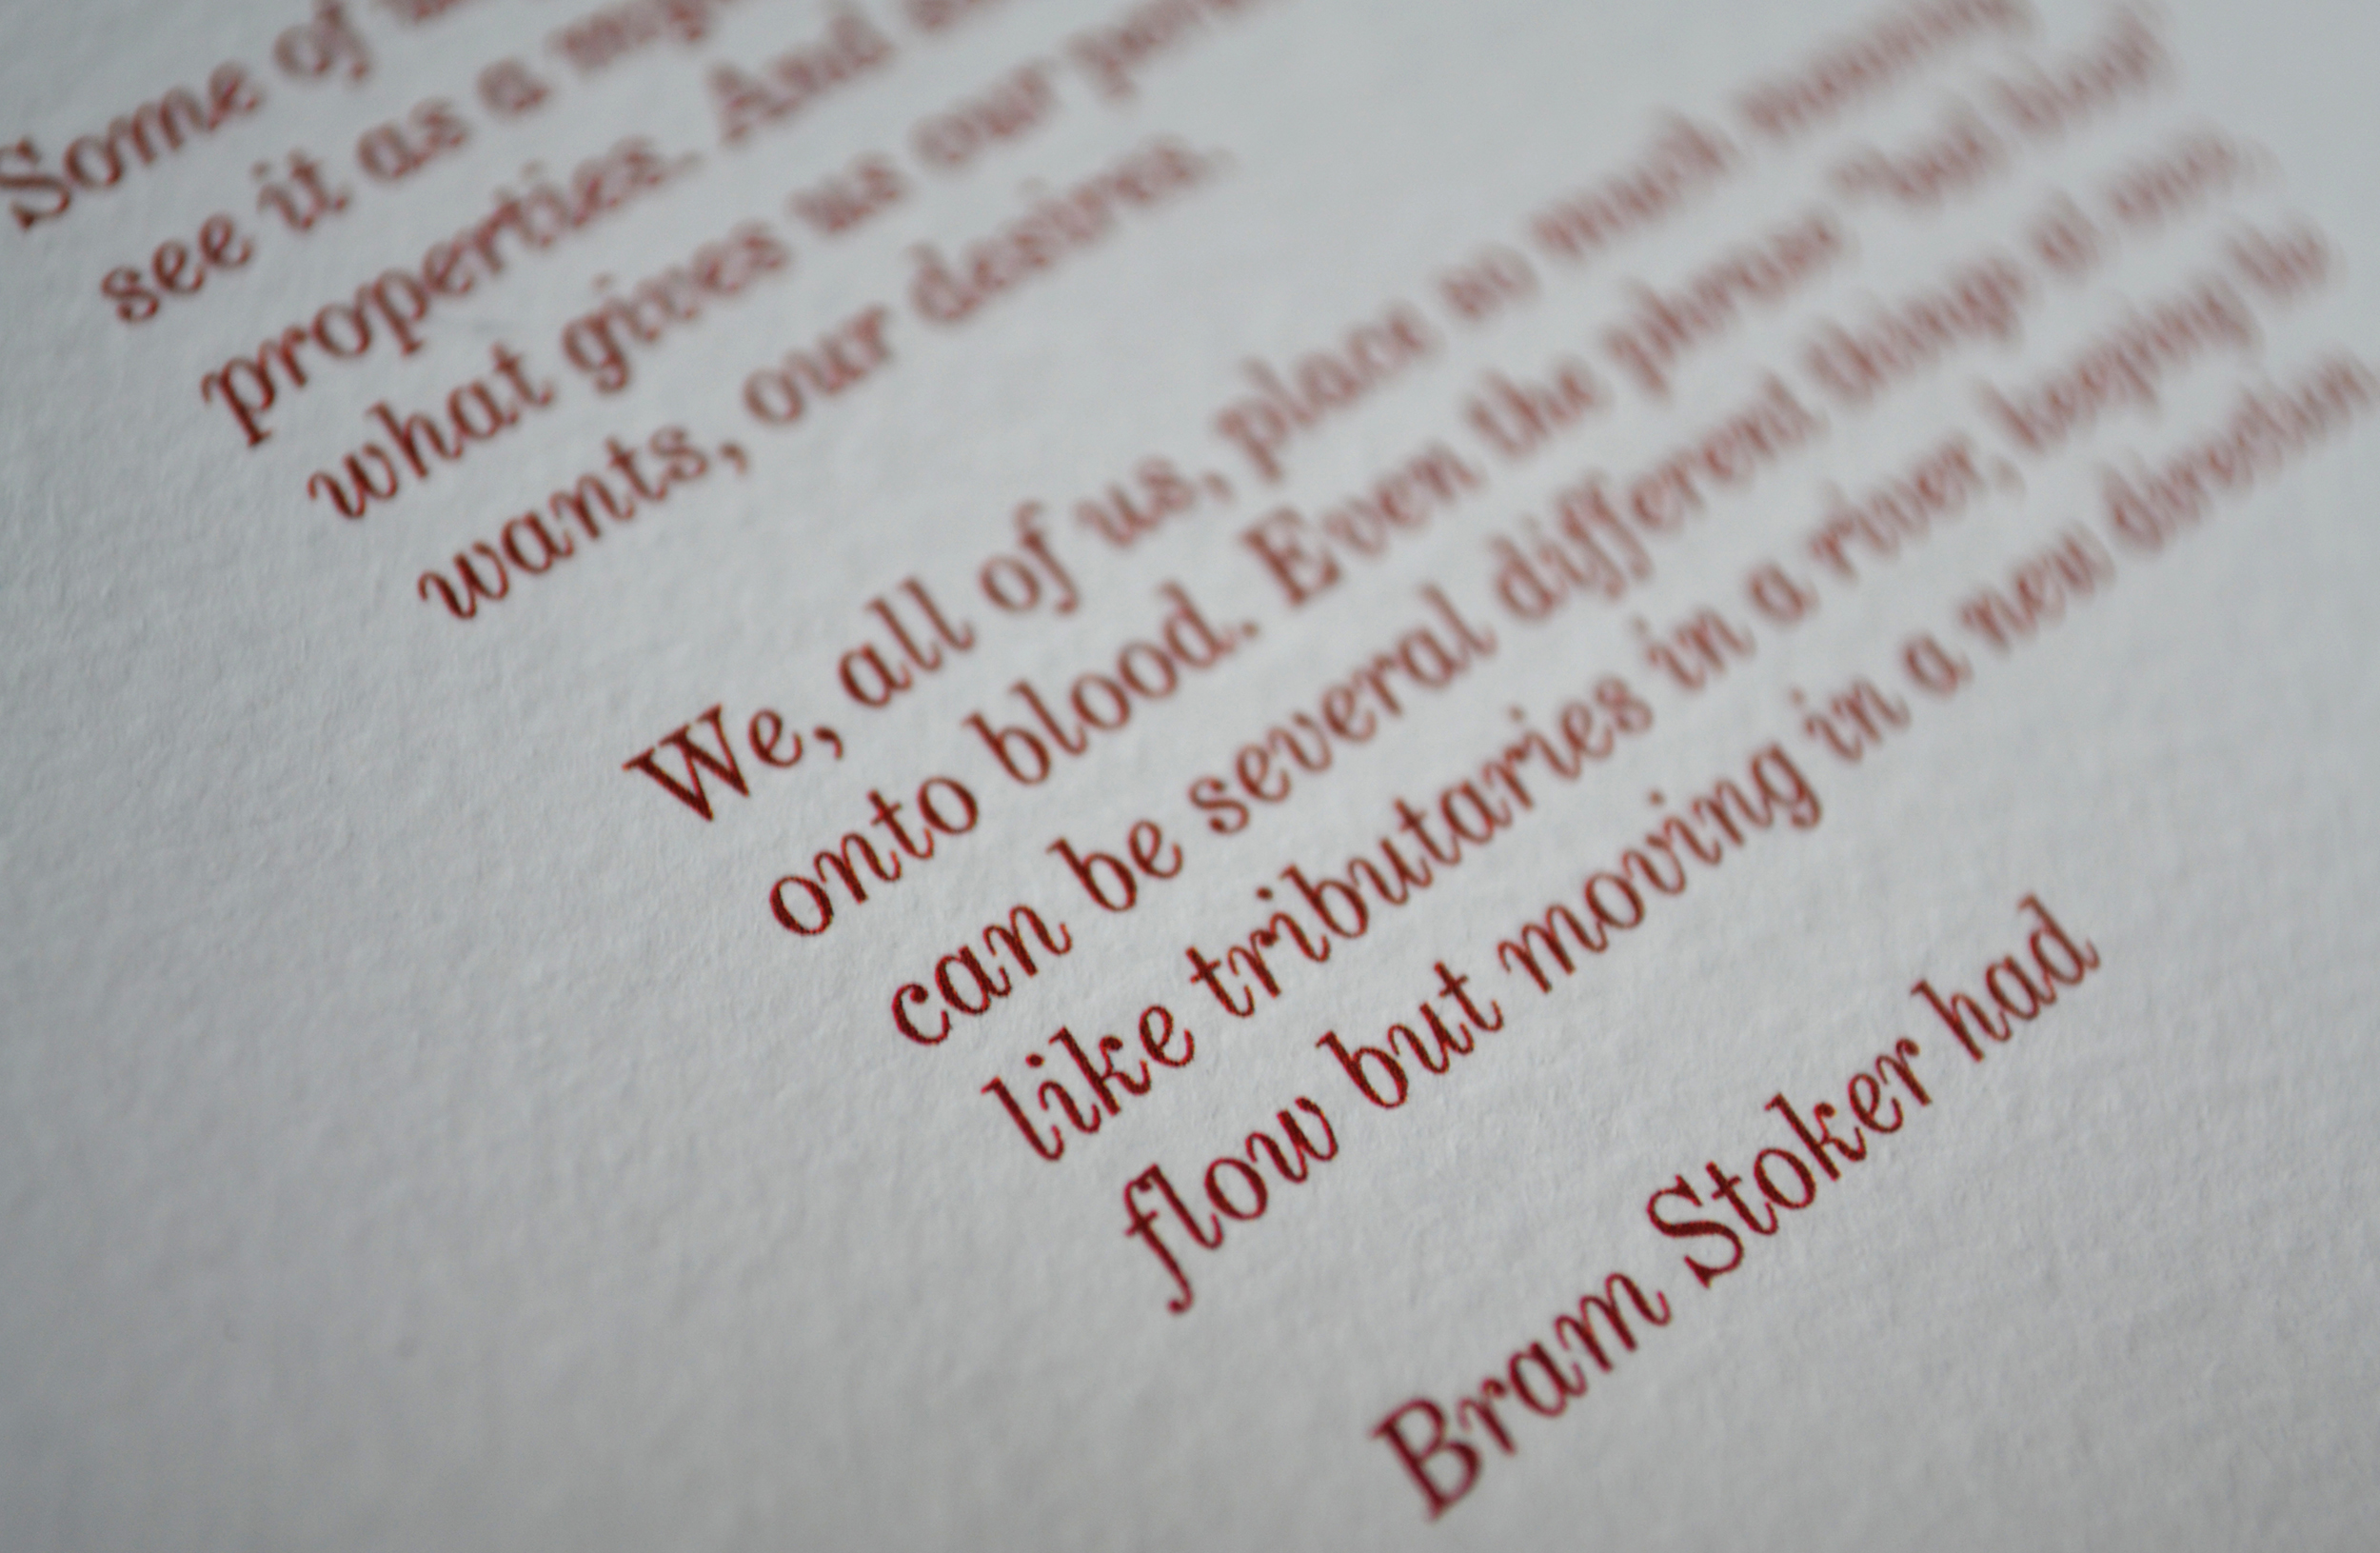 Some of
see it as a
properties. And
what gives us our
wants, our desires.
We, all of us, place so much meaning
onto blood. Even the phrase "hot blood"
can be several different things at once,
like tributaries in a river, keeping the
flow but moving in a new direction
Bram Stoker had